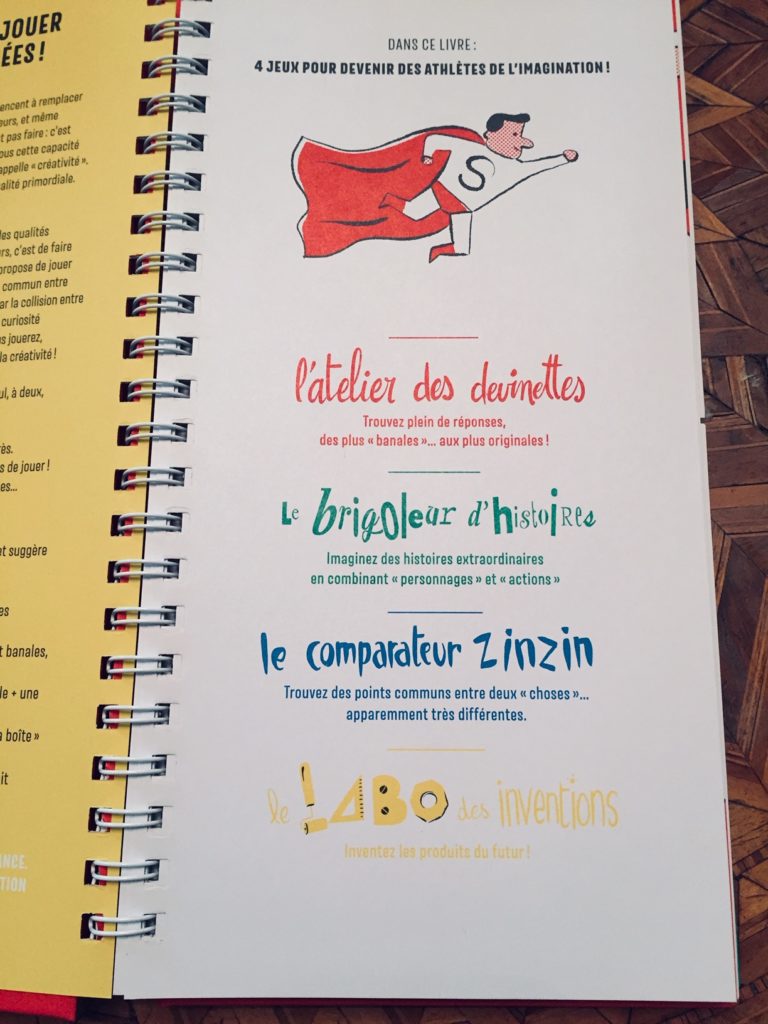 JOUER
ÉES !
encent à remplacer
eurs, et même
t pas faire : c'est
ous cette capacité
appelle « créativité »,
alité primordiale.
les qualités
rs, c'est de faire
propose de jouer
commun entre
ar la collision entre
curiosité
us jouerez,
la créativité !
ul, à deux,
rès.
s de jouer !
es...
et suggère
es
t banales,
le + une
a boîte »
it
ANCE.
TION
DANS CE LIVRE :
4 JEUX POUR DEVENIR DES ATHLÈTES DE L'IMAGINATION !
S
l'atelier des devinettes
Trouvez plein de réponses,
des plus « banales »... aux plus originales !
Le brigoleur d'histoires
Imaginez des histoires extraordinaires
en combinant « personnages » et « actions »
le comparateur zinzin
Trouvez des points communs entre deux « choses »...
apparemment très différentes.
le LABO des inventions
Inventez les produits du futur !